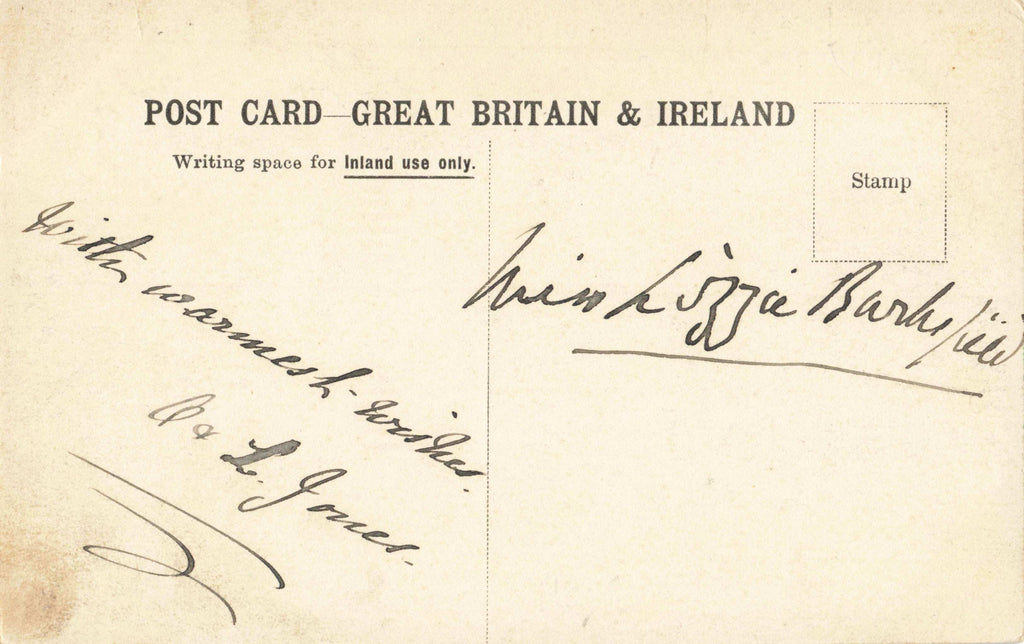 POST CARD—GREAT BRITAIN & IRELAND
Writing space for Inland use only.
Stamp
With warmest wishes.
& L. Jones.
Miss Lizzie